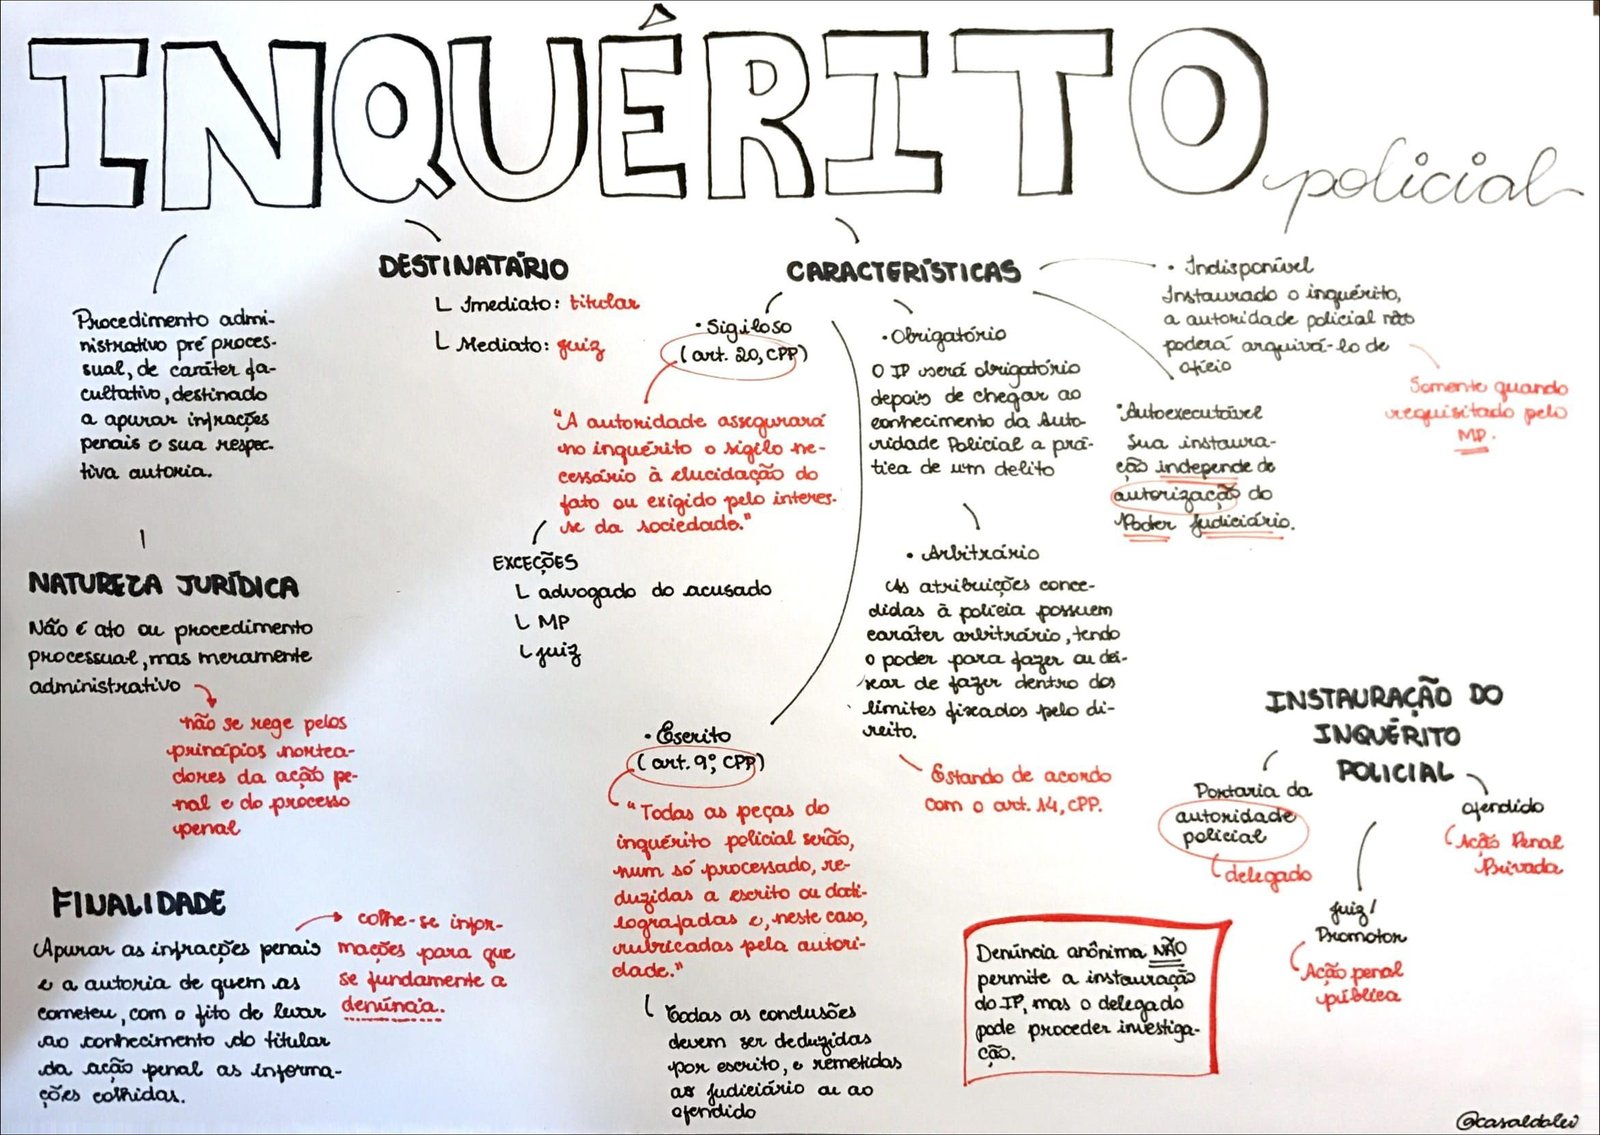 INQUÉRITO
policial
Procedimento admi-
nistrativo pré proces-
sual, de caráter fa-
cultativo, destinado
a apurar infrações
penais e sua respec-
tiva autoria.
NATUREZA JURÍDICA
Não é ato ou procedimento
processual, mas meramente
administrativo
não se rege pelos
princípios nortea-
dores da ação pe-
nal e do processo
penal
FINALIDADE
Apurar as infrações penais
e a autoria de quem as
cometeu, com o fito de levar
ao conhecimento do titular
da ação penal as informa-
ções colhidas.
colhe-se infor-
mações para que
se fundamente a
denúncia.
DESTINATÁRIO
Imediato: titular
Mediato: juiz
CARACTERÍSTICAS
• Sigiloso
(art. 20, CPP)
"A autoridade assegurará
no inquérito o sigilo ne-
cessário à elucidação do
fato ou exigido pelo interes-
se da sociedade."
EXCEÇÕES
advogado do acusado
MP
juiz
• Escrito
(art. 9º, CPP)
"Todas as peças do
inquérito policial serão,
num só processado, re-
duzidas a escrito ou dati-
lografadas e, neste caso,
rubricadas pela autori-
dade."
Todas as conclusões
devem ser deduzidas
por escrito, e remetidas
ao judiciário ou ao
ofendido
• Obrigatório
O IP será obrigatório
depois de chegar ao
conhecimento da Auto-
ridade Policial a prá-
tica de um delito
• Arbitrário
As atribuições conce-
didas à polícia possuem
caráter arbitrário, tendo
o poder para fazer ou dei-
xar de fazer dentro dos
limites fixados pelo di-
reito.
Estando de acordo
com o art. 14, CPP.
• Indisponível
Instaurado o inquérito,
a autoridade policial não
poderá arquivá-lo de
ofício
Somente quando
requisitado pelo
MP.
• Autoexecutável
Sua instaura-
ção independe de
autorização do
Poder Judiciário.
INSTAURAÇÃO DO
INQUÉRITO
POLICIAL
Portaria da
autoridade
policial
delegado
juiz/
Promotor
Ação penal
pública
ofendido
Ação Penal
Privada
Denúncia anônima NÃO
permite a instauração
do IP, mas o delegado
pode proceder investiga-
ção.
@casaldalei